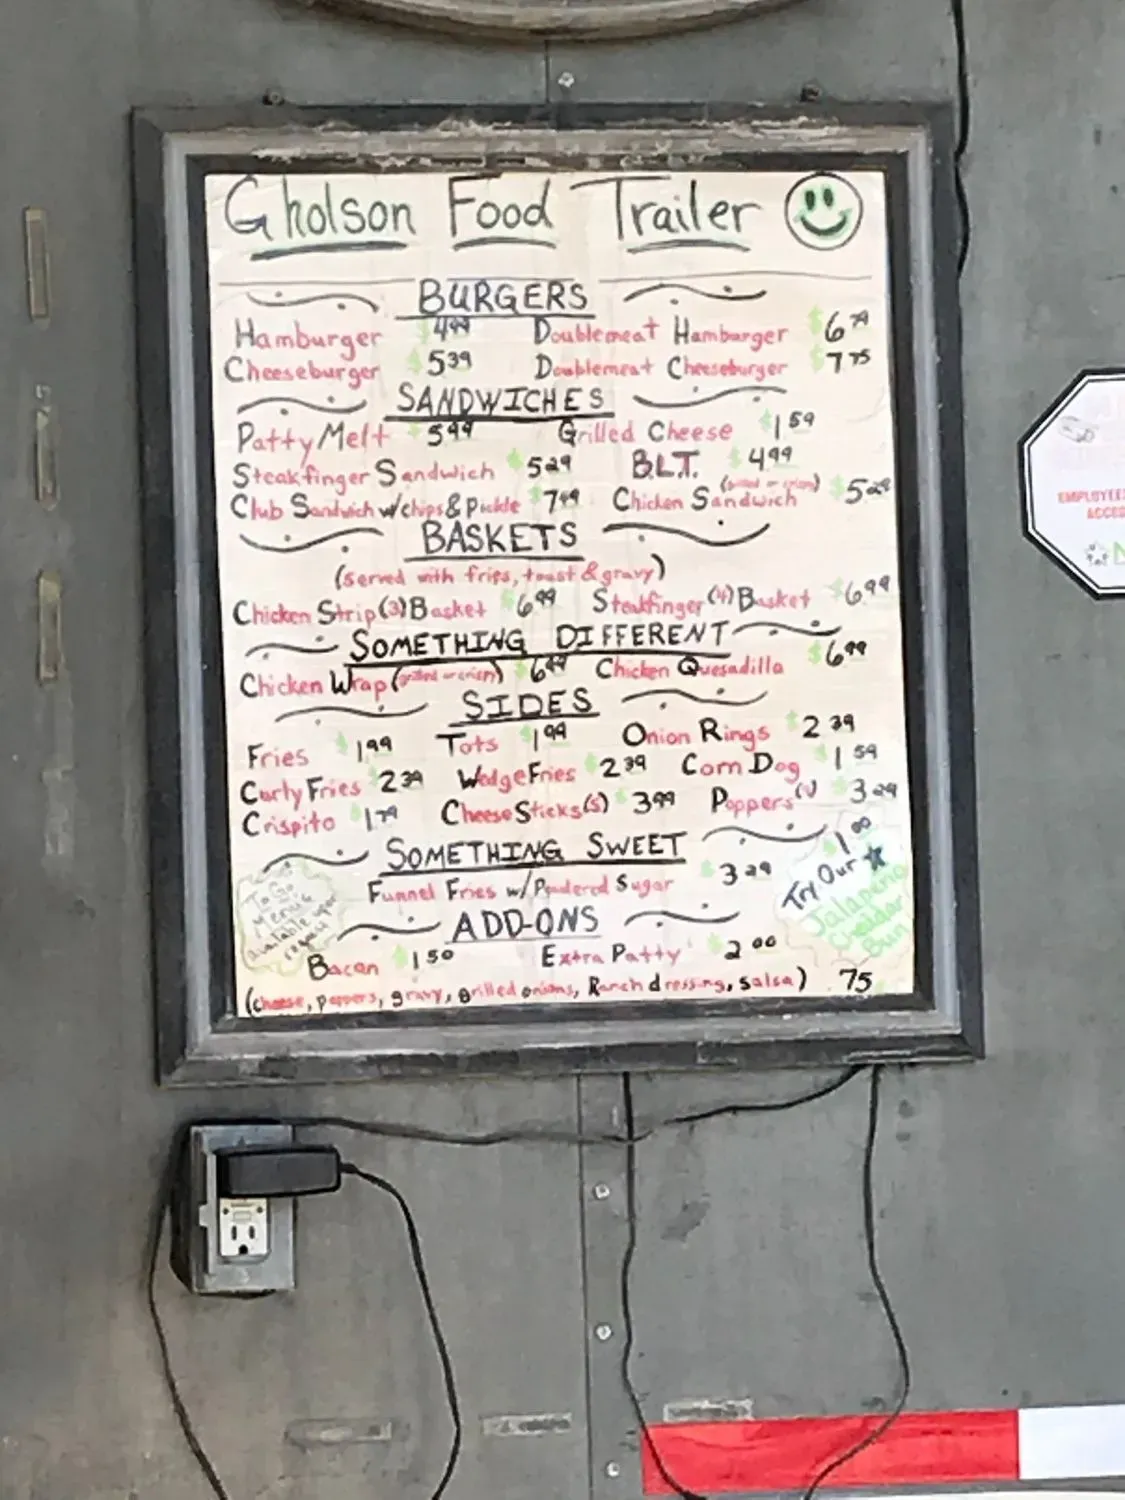 Gholson Food Trailer
BURGERS
Hamburger $4.99 Doublemeat Hamburger $6.79
Cheeseburger $5.39 Doublemeat Cheeseburger $7.75
SANDWICHES
Patty Melt $5.99 Grilled Cheese $1.59
Steakfinger Sandwich $5.29 B.L.T. $4.99
Club Sandwich w/chips & Pickle $7.49 Chicken Sandwich (grilled or crispy) $5.29
BASKETS
(served with fries, toast & gravy)
Chicken Strip (3) Basket $6.99 Steakfinger (4) Basket $6.99
SOMETHING DIFFERENT
Chicken Wrap (grilled or crispy) $6.49 Chicken Quesadilla $6.99
SIDES
Fries $1.99 Tots $1.99 Onion Rings $2.39
Curly Fries $2.39 Wedge Fries $2.39 Corn Dog $1.59
Crispito $1.79 Cheese Sticks (5) $3.99 Poppers $3.29
SOMETHING SWEET
Funnel Fries w/ Powdered Sugar $3.29
$1.00
Try Our
Jalapeno
Cheddar
Bun
To Go
Menus
available upon
request
ADD-ONS
Bacon $1.50 Extra Patty $2.00
(cheese, peppers, gravy, grilled onions, Ranch dressing, salsa) .75